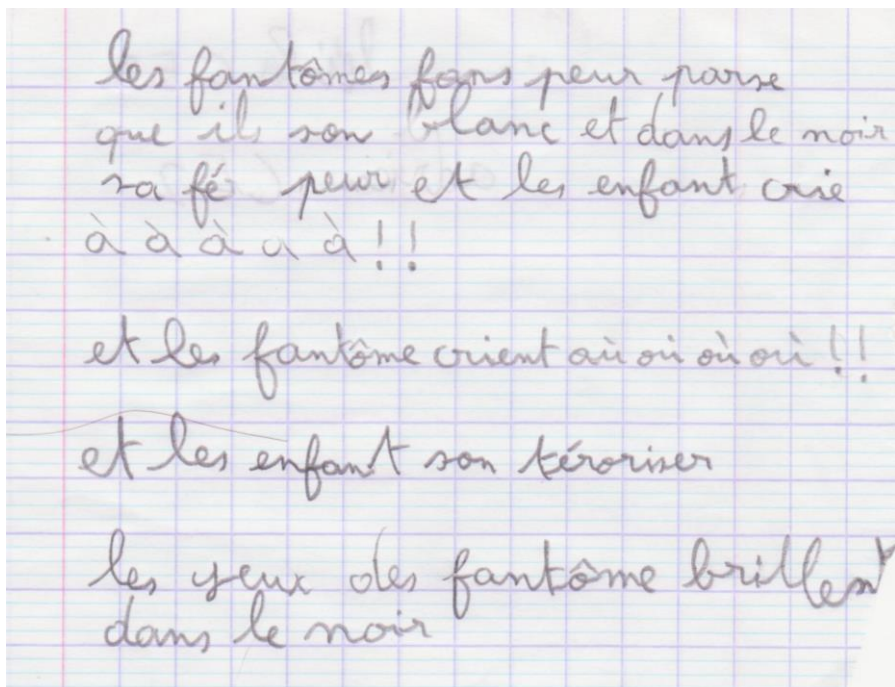 les fantômes fons peur parse
que il son blanc et dans le noir
sa fé peur et les enfant crie
à à à a à !!
et les fantôme crient où où où où !!
et les enfant son téroriser
les yeux des fantôme brillent
dans le noir